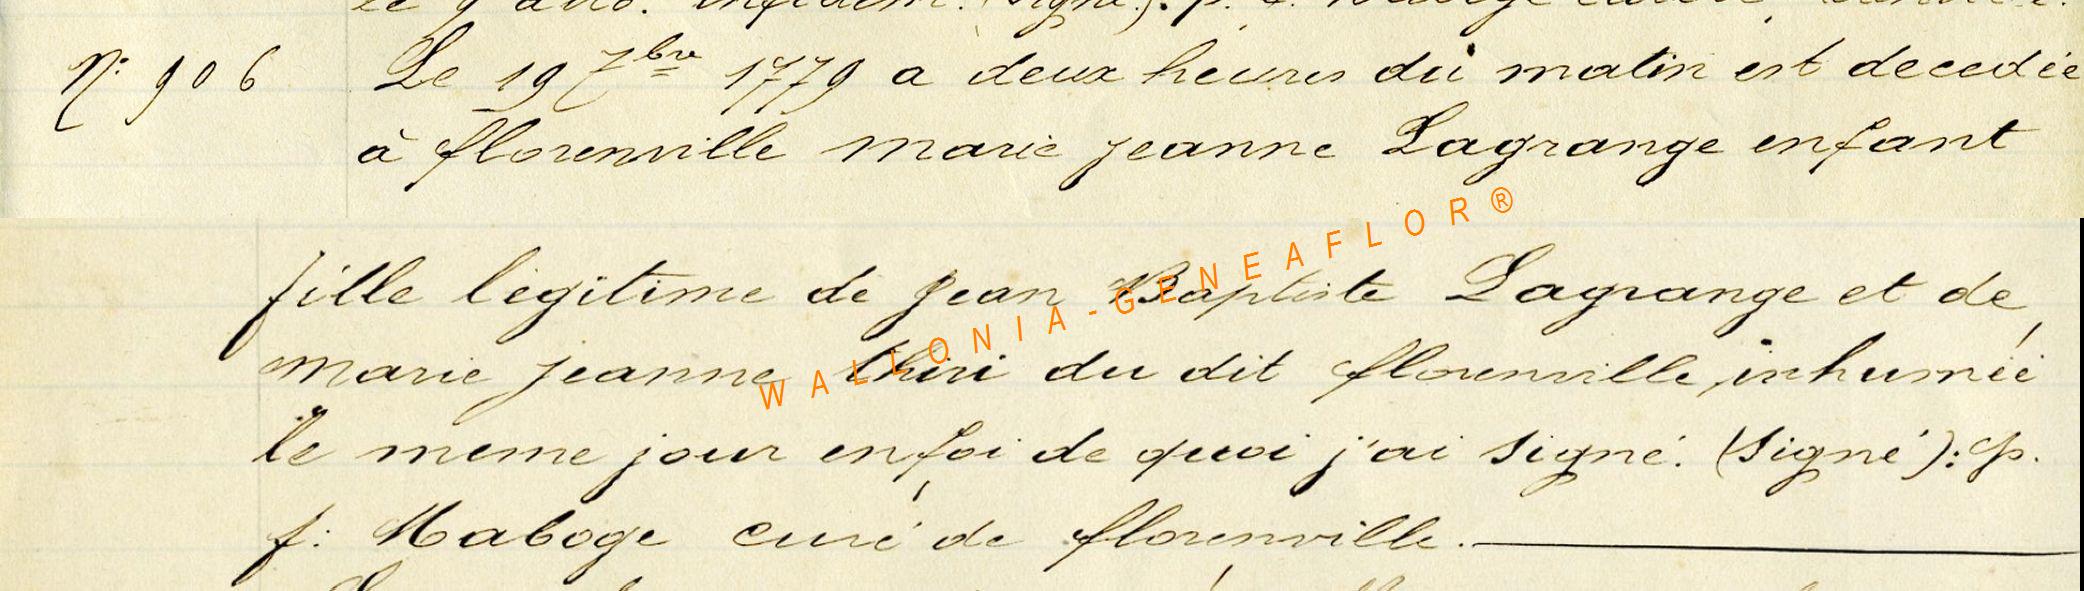 N° 906 Le 19 7bre 1779 a deux heures du matin est decedée
à florenville marie jeanne Lagrange enfant
fille legitime de jean Baptiste Lagrange et de
marie jeanne thiri du dit florenville, inhumée
le meme jour en foi de quoi j'ai signé. (Signé): p.
f: Maboge curé de florenville.
WALLONIA-GENEAFLOR®